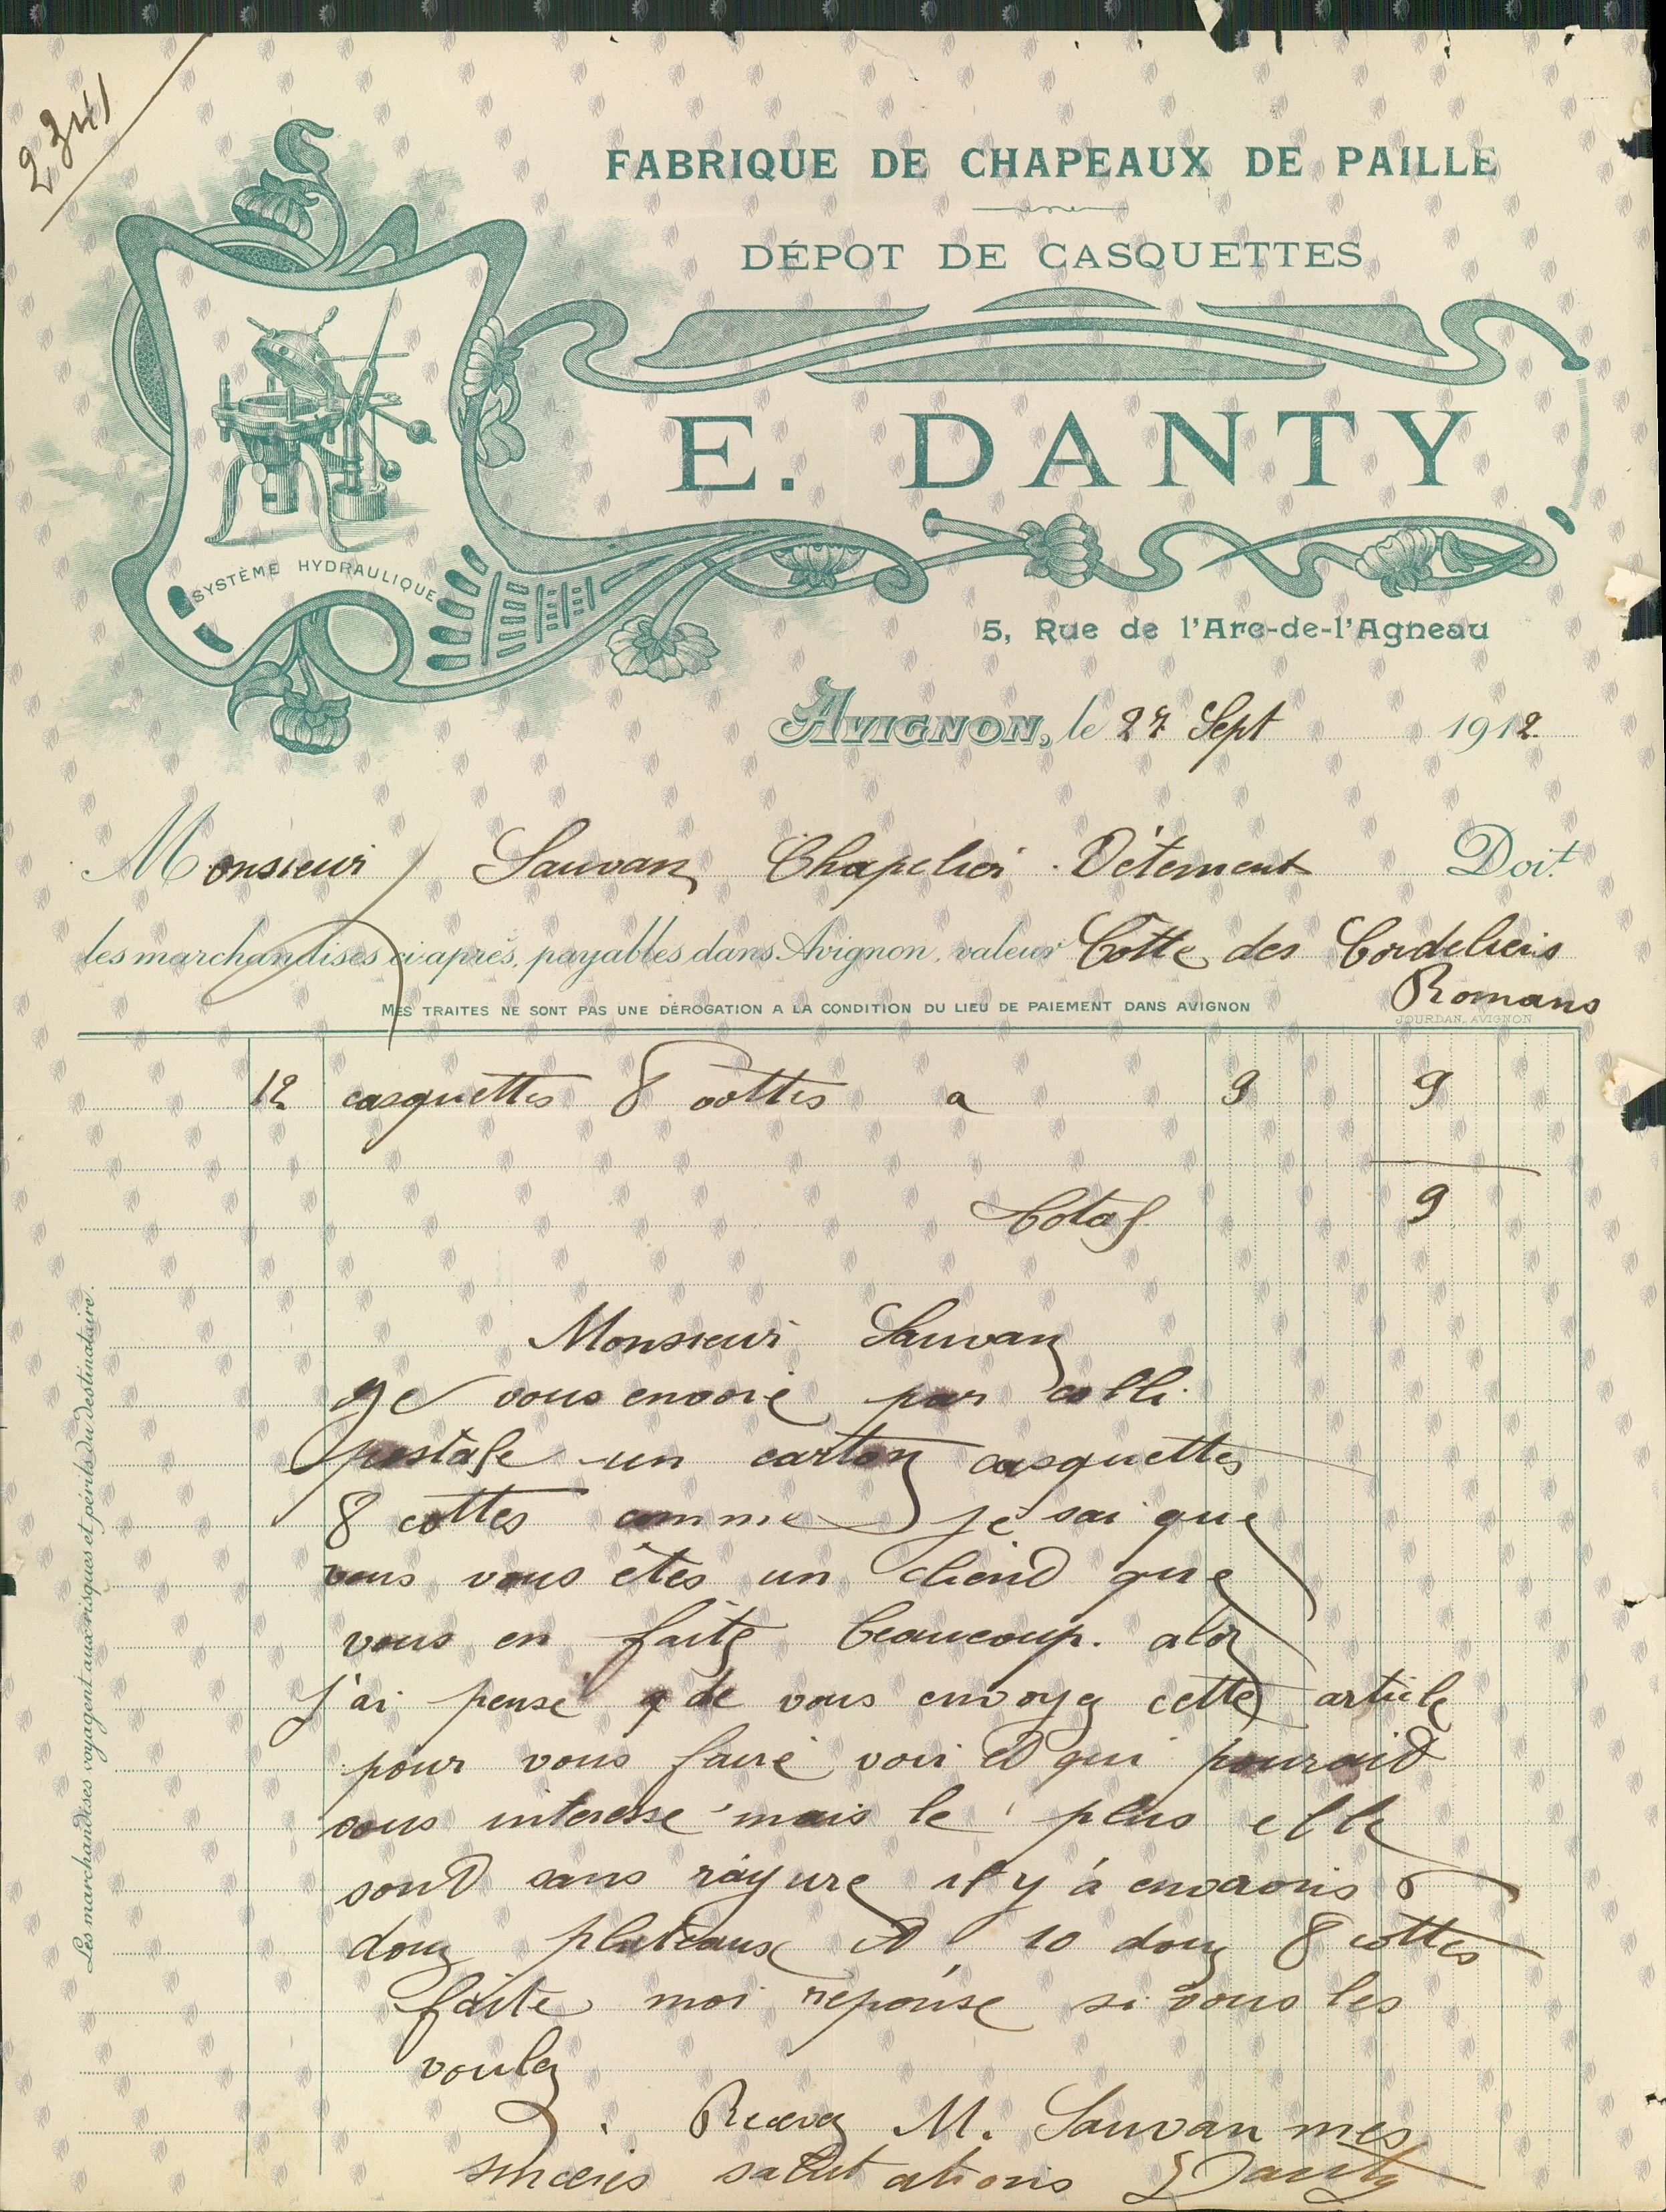 2341
FABRIQUE DE CHAPEAUX DE PAILLE
DÉPOT DE CASQUETTES
E. DANTY
SYSTÈME HYDRAULIQUE
5, Rue de l'Arc-de-l'Agneau
AVIGNON, le 27 Sept 1912
Monsieur Sauvan Chapelier Vêtement Doit
les marchandises ci-après, payables dans Avignon, valeur Côtte des Cordeliers
Romans
MES TRAITES NE SONT PAS UNE DÉROGATION A LA CONDITION DU LIEU DE PAIEMENT DANS AVIGNON
JOURDAN, AVIGNON
12 casquettes 8 cottes a 9 9
Total 9
Monsieur Sauvan
Je vous envoie par colli
postale un carton casquettes
8 cottes comme je sai que
vous vous êtes un cliend que
vous en faite beaucoup. alor
j'ai pensé de vous envoyez cette article
pour vous faire voir et qui pouraid
vous interesse mais le plus elle
sont sans rayure il y à environs 6
douz plateaux et 10 douz 8 cottes
faite moi reponse si vous les
voulez
Recevez M. Sauvan mes
sinceres salutations EDanty
Les marchandises voyagent aux risques et périls du destinataire.